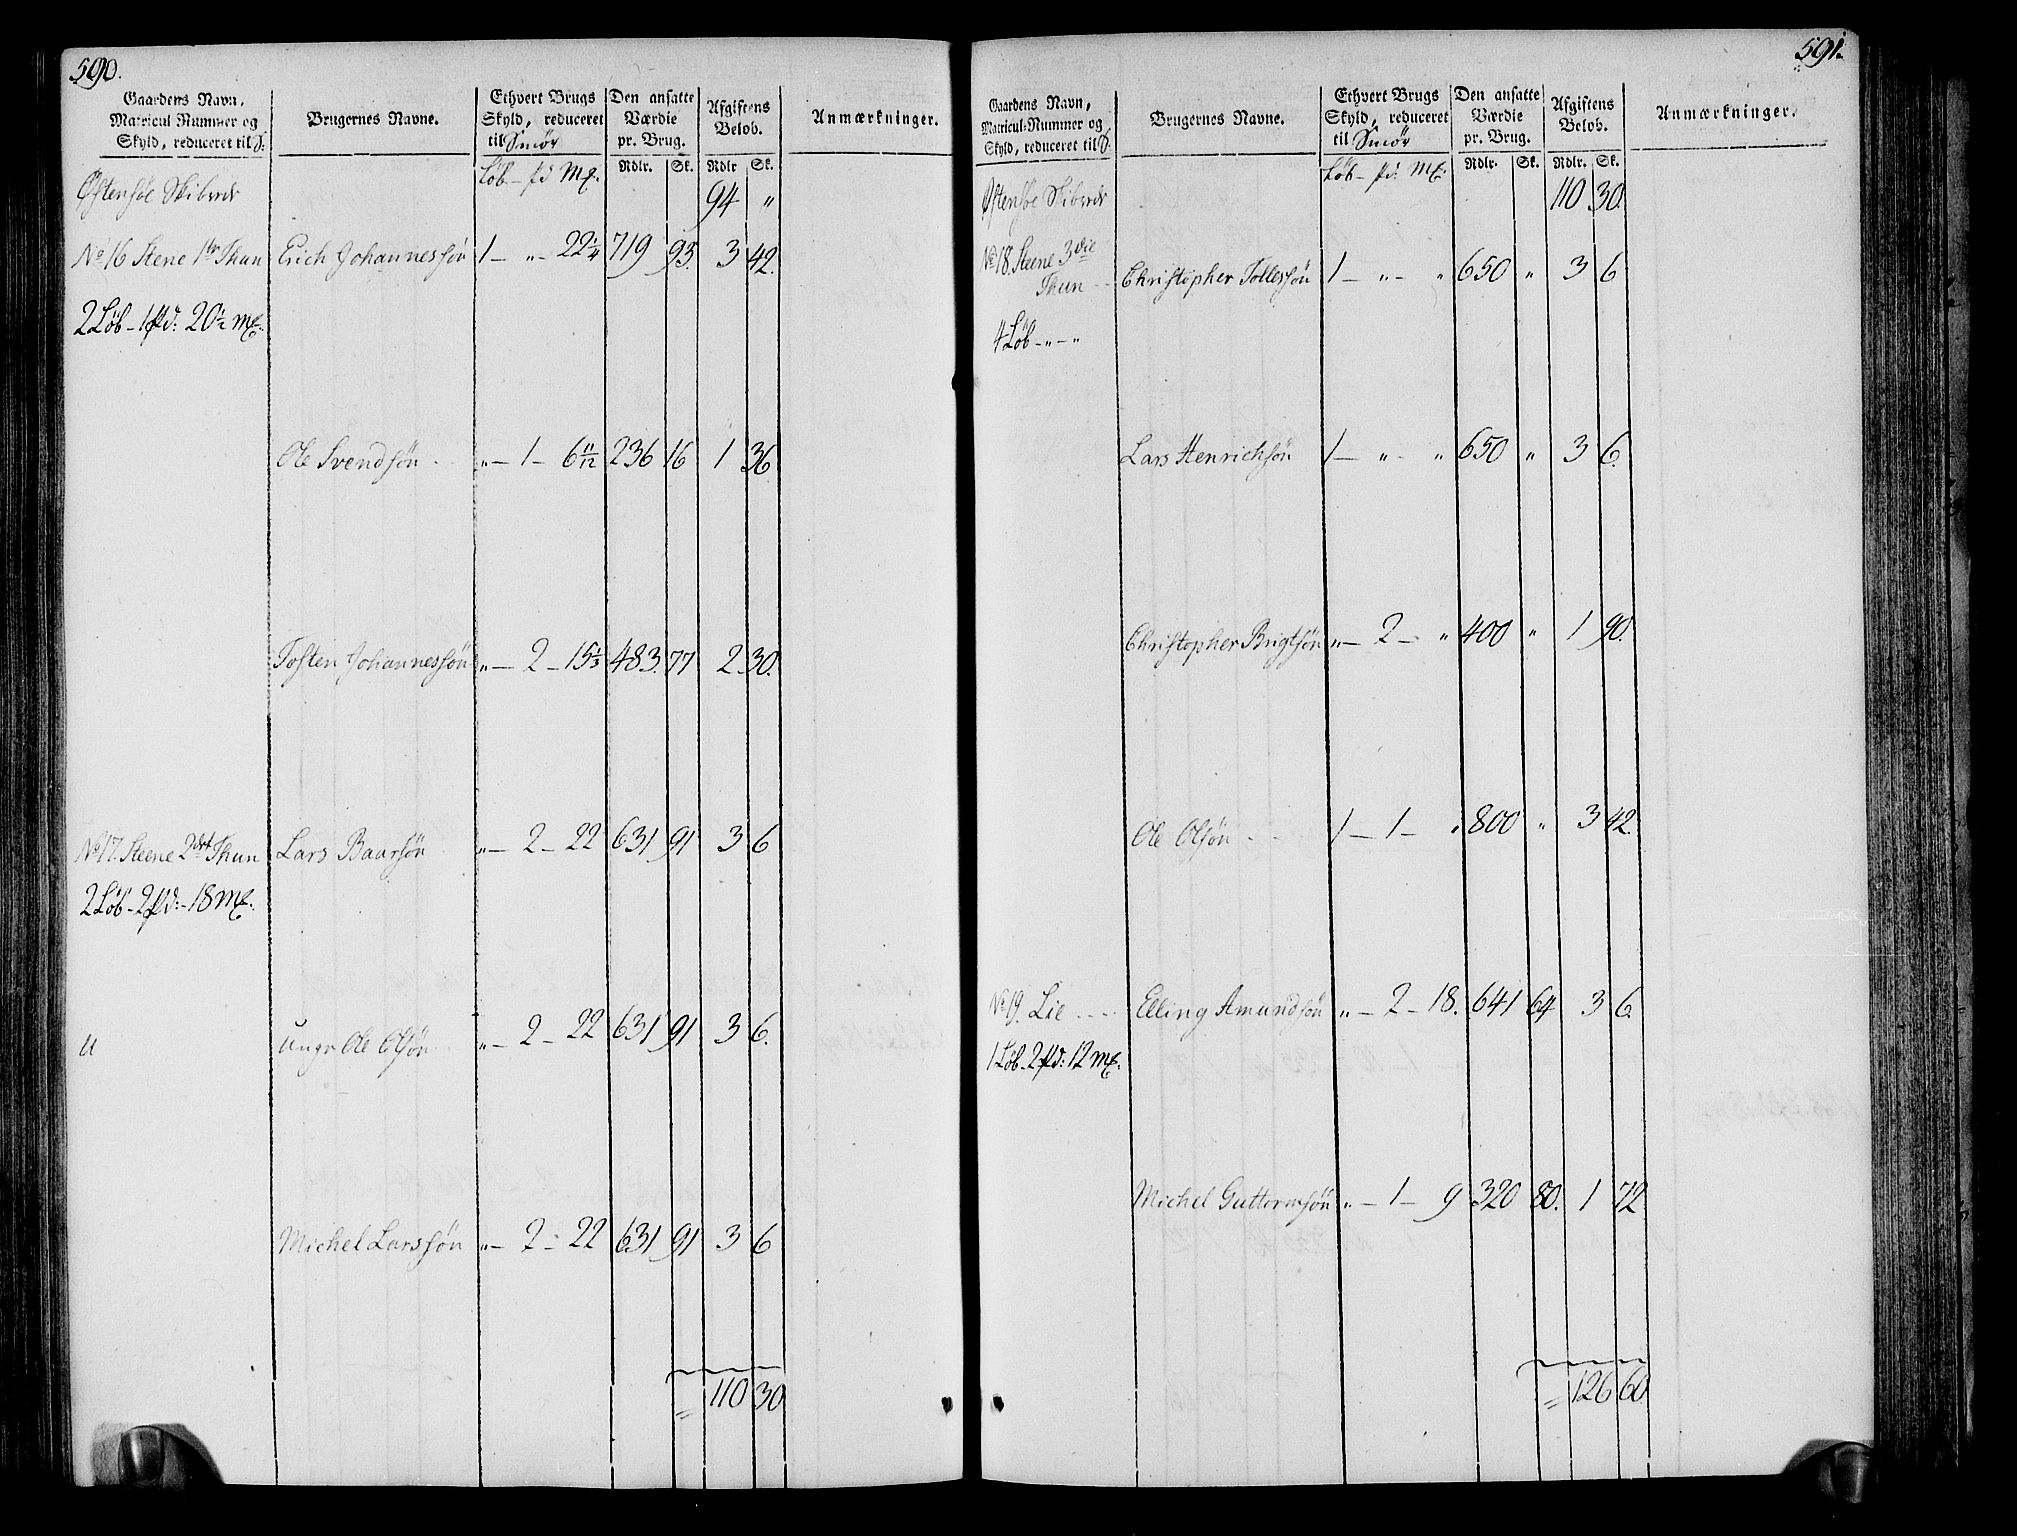 590.
Gaardens Navn, Matricul-Nummer og Skyld, reduceret til S: | Brugernes Navne. | Ethvert Brugs Skyld, reduceret til Smör | Den ansatte Værdie pr. Brug. | Afgiftens Beløb. | Anmærkninger.
Löb – pd Mk: | Rdlr. | Sk. | Rdlr | Sk.
Østensöe Skibrede 94 "
No 16 Stene 1ste Thun Erich Johannessön 1 – " – 22 1/4 719 93. 3 42.
2 Löb – 1 pd: 20 1/2 Mk:
Ole Svendsön " – 1 – 6 11/12 236 16 1 36.
Tosten Johannessön " – 2 – 15 1/3 483. 77 2 30.
No 17. Steene 2det Thun Lars Baarsön " – 2 – 22 631 91 3 6
2 Löb – 2 pd: – 18 Mk:
unge Ole Olsön " – 2 – 22 631 91 3 6.
Michel Larssön " – 2 – 22 631 91 3 6
= 110 30.
591.
Gaardens Navn, Matricul-Nummer og Skyld, reduceret til S. | Brugernes Navne. | Ethvert Brugs Skyld, reduceret til Smör | Den ansatte Værdie pr. Brug. | Afgiftens Beløb. | Anmærkninger.
Löb – pd: Mk: | Rdlr. | Sk. | Rdlr. | Sk.
Østensöe Skibrede 110 30.
No 18 Steene 3die Thun Christopher Tollessön 1 – " – " 650 " 3 6
4 Löb – " – "
Lars Henrichsön 1 – " – " 650 " 3 6.
Christopher Brigtsön " – 2 – " 400 " 1 90.
Ole Olsön 1 – 1 – " 800 " 3 42.
No 19. Lie Elling Amundsön " – 2 – 18. 641 64 3 6.
1 Löb – 2 pd: 12 Mk:
Michel Guttormsön " – 1 – 9 320 80. 1 72
= 126 60